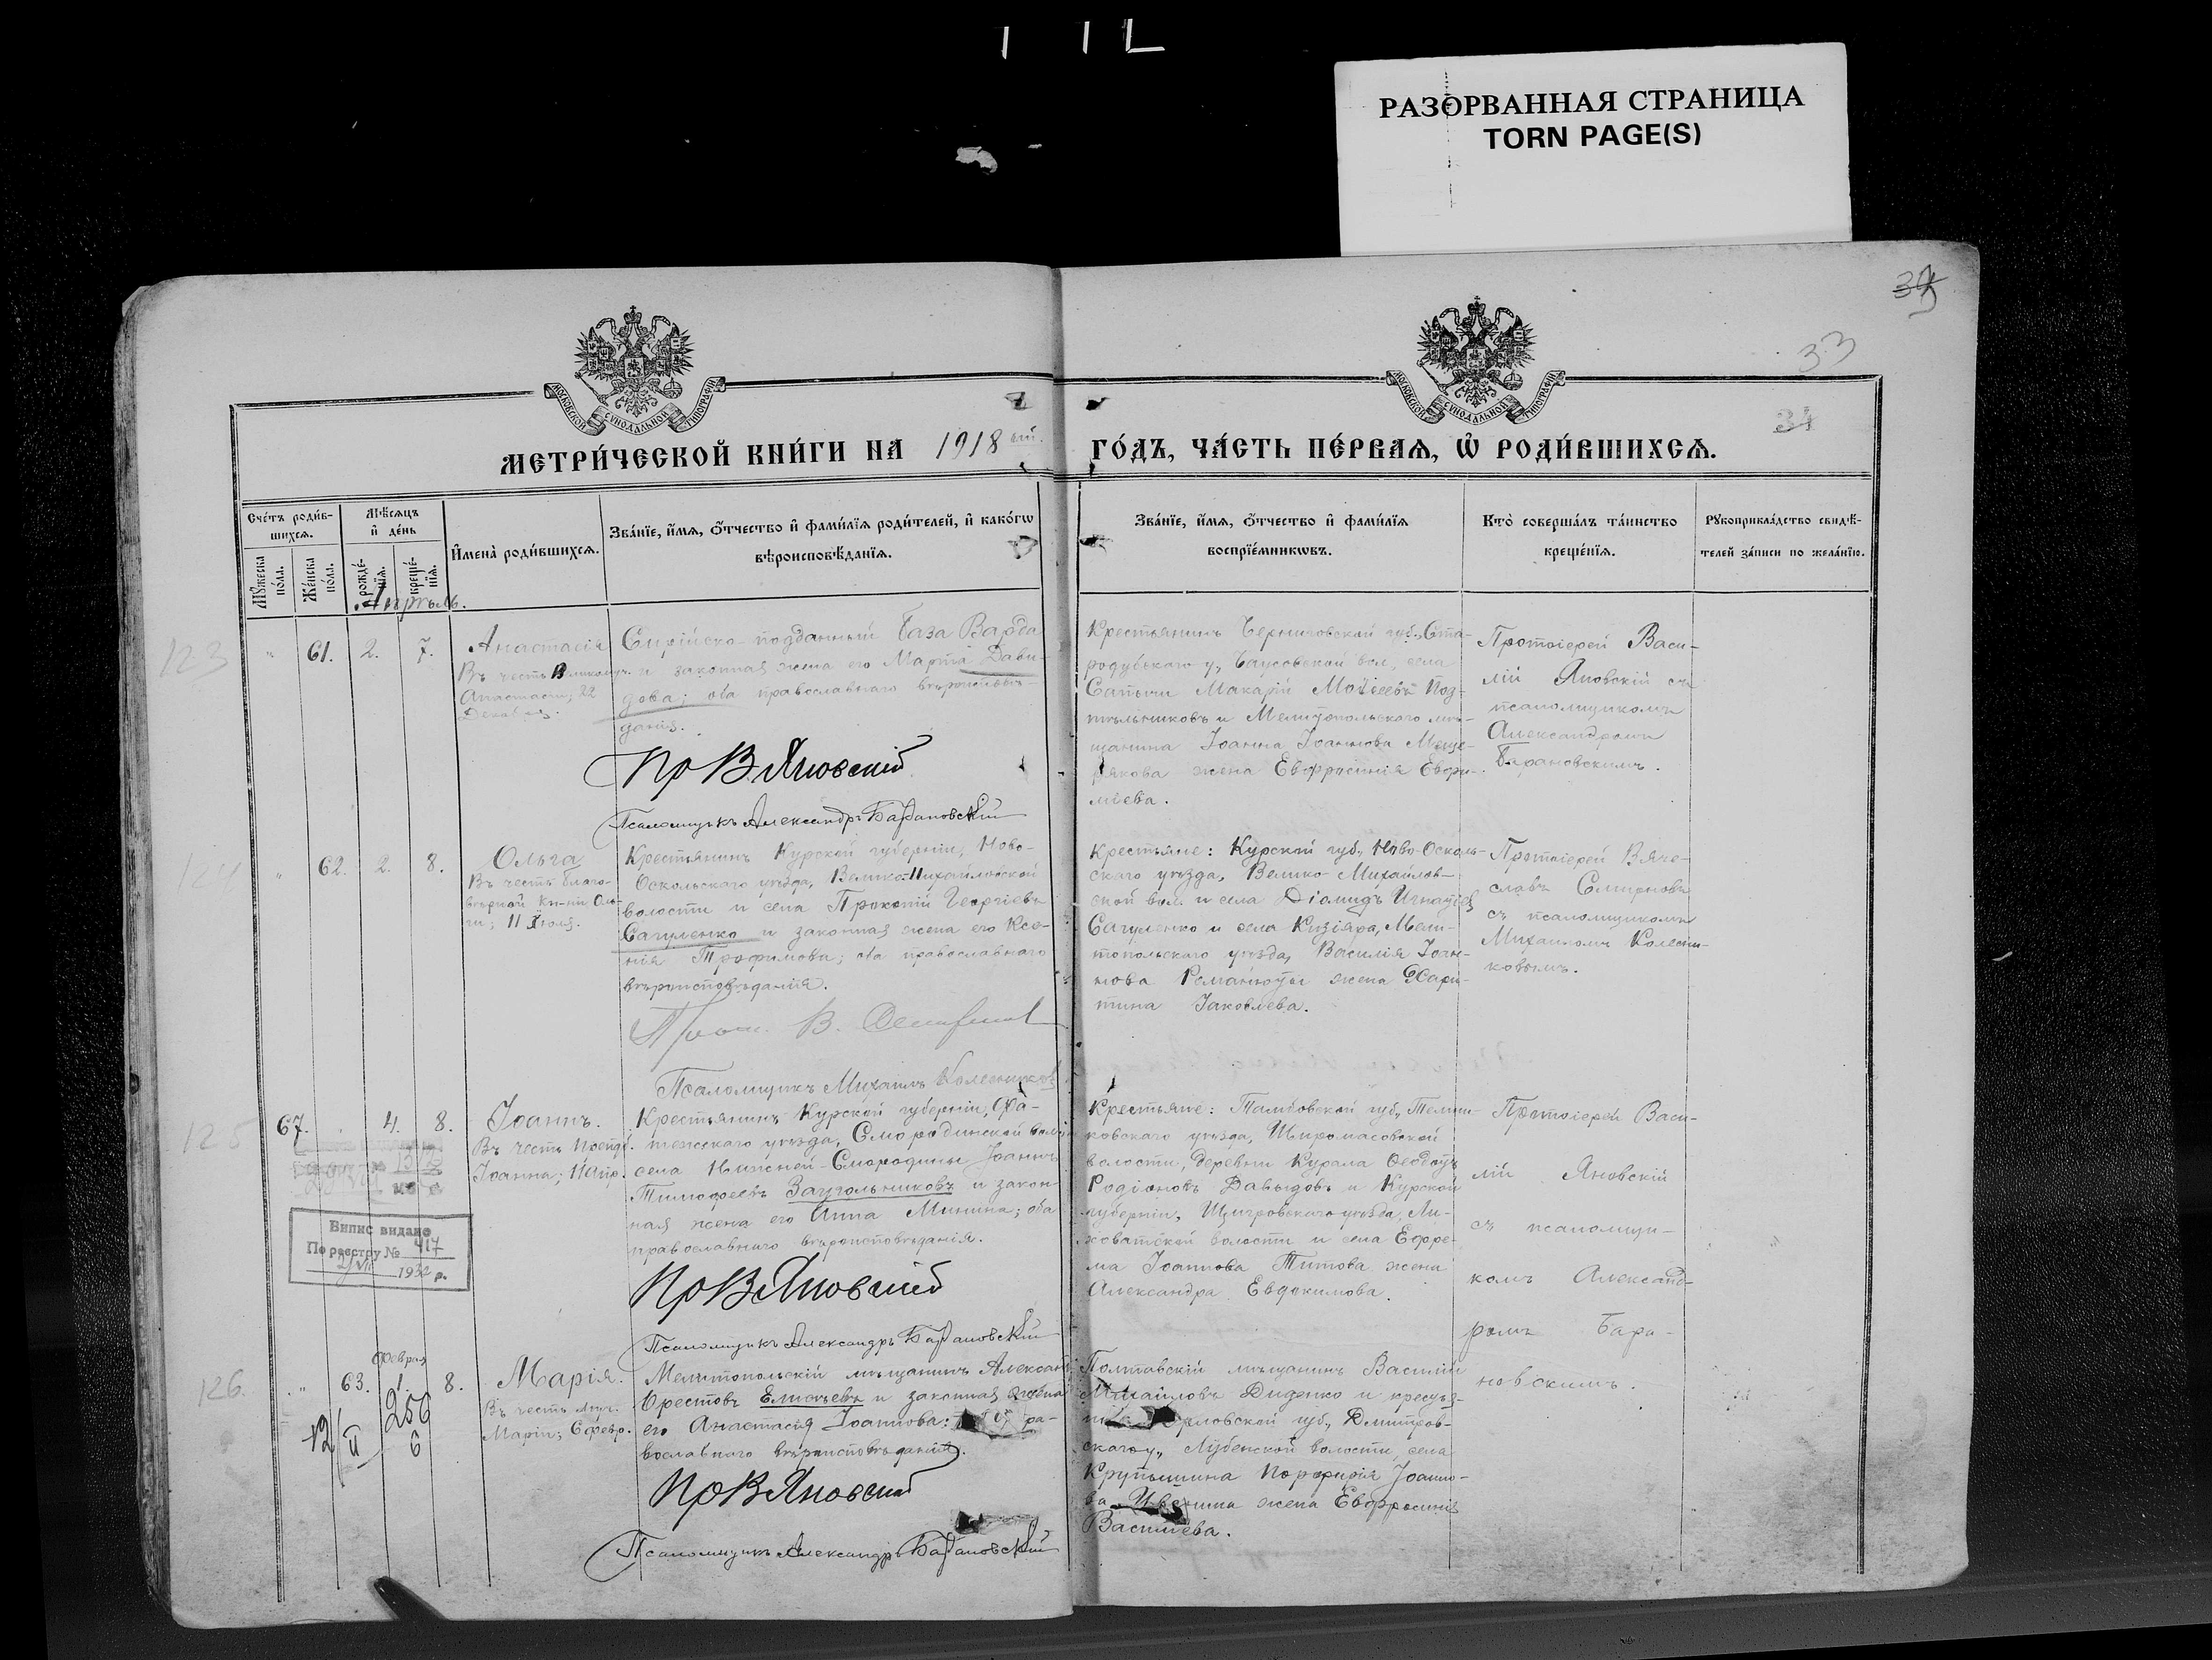 РАЗОРВАННАЯ СТРАНИЦА
TORN PAGE(S)
34
33
34
МОСКОВСКОЙ СѴНОДАЛЬНОЙ ТИПОГРАФІИ
МОСКОВСКОЙ СѴНОДАЛЬНОЙ ТИПОГРАФІИ
МЕТРИ́ЧЕСКОЙ КНИ́ГИ НА 1918 ый.
ГО́ДЪ, ЧА́СТЬ ПЕ́РВАѦ, Ѡ҆ РОДИ́ВШИХСѦ.
Сче́тъ роди́в-
шихсѧ.
Мꙋ́жеска
по́ла.
Же́нска
по́ла.
Мѣ́сѧцъ
и҆ де́нь
рожде́-
нїѧ.
креще́-
нїѧ.
И҆мена̀ роди́вшихсѧ.
Зва́нїе, и҆́мѧ, ѻ҆́тчество и҆ фами́лїѧ роди́телей, и҆ како́гѡ
вѣроисповѣ́данїѧ.
Зва́нїе, и҆́мѧ, ѻ҆́тчество и҆ фами́лїѧ
воспрїе́мникѡвъ.
Кто̀ соверша́лъ та́инство
креще́нїѧ.
Рꙋкоприкла́дство свидѣ́-
телей за́писи по жела́нїю.
Апрѣль.
123
" 61. 2. 7.
Анастасія
Въ честь Великомуч.
Анастасіи; 22
Декабря.
Сирійско-подданный База Варда
и законная жена его Марта Дави-
дова; оба православнаго вѣроисповѣ-
данія.
Пр В Яновскій
Псаломщикъ Александръ Барановскій
Крестьянинъ Черниговской губ., Ста-
родубскаго у., села
Сапычи Макарій Моѵсеевъ Поз-
тельниковъ и Мелитопольскаго мѣ-
щанина Іоанна Іоаннова Меще-
рякова жена Евфросинія Евфи-
міева.
Протоіерей Васи-
лій Яновскій съ
псаломщикомъ
Александромъ
Барановскимъ.
124
" 62. 2. 8.
Ольга
Въ честь благо-
вѣрной кн-ни Оль-
ги; 11 Іюля.
Крестьянинъ Курской губерніи, Ново-
Оскольскаго уѣзда, Велико-Михайловской
волости и села Прокопій Георгіевъ
Сагуленко и законная жена его Ксе-
нія Трофимова; оба православнаго
вѣроисповѣданія.
Прот. В. Смирновъ
Псаломщикъ Михаилъ Колесниковъ
Крестьяне: Курской губ., Ново-Осколь-
скаго уѣзда, Велико-Михайлов-
ской вол. и села Діомидъ Игнатіевъ
Сагуленко и села Кизіяра, Мели-
топольскаго уѣзда, Василія Іоан-
нова Романюты жена Хари-
тина Іаковлева.
Протоіерей Вяче-
славъ Смирновъ
съ псаломщикомъ
Михаиломъ Колесни-
ковымъ.
125
67. " 4. 8.
Іоаннъ.
Въ честь Препод.
Іоанна; 11 Апр.
Випис видано
По реєстру № 417
1932 р.
Крестьянинъ Курской губерніи, Фа-
тежскаго уѣзда, Смородинской волости
села Нижней-Смородины Іоаннъ
Тимофеевъ Заугольниковъ и закон-
ная жена его Анна Минина; оба
православнаго вѣроисповѣданія.
Пр В Яновскій
Псаломщикъ Александръ Барановскій
Крестьяне: Тамбовской губ., Темни-
ковскаго уѣзда, Широмасовской
волости, деревни Курала Ѳеодотъ
Родіоновъ Давыдовъ и Курской
губерніи, Щигровскаго уѣзда, Ли-
поватской волости и села Ефре-
ма Іоаннова Титова жена
Александра Евдокимова.
Протоіерей Васи-
лій Яновскій
съ псаломщи-
комъ Александ-
ромъ Бара-
новскимъ.
126.
" 63. Февраль 1. 8.
12/II 256
6
Марія.
Въ честь муч.
Маріи; 6 февр.
Мелитопольскій мѣщанинъ Александръ
Орестовъ Елисѣевъ и законная жена
его Анастасія Іоаннова: ра-
вославнаго вѣроисповѣданія.
Пр В Яновскій
Псаломщикъ Александръ Барановскій
Полтавскій мѣщанинъ Василій
Михайловъ Диденко и крестья-
Орловской губ., Дмитров-
скаго у., Лубенской волости, села
Крупышина Порфирія Іоанно-
ва жена Евфросинія
Василіева.